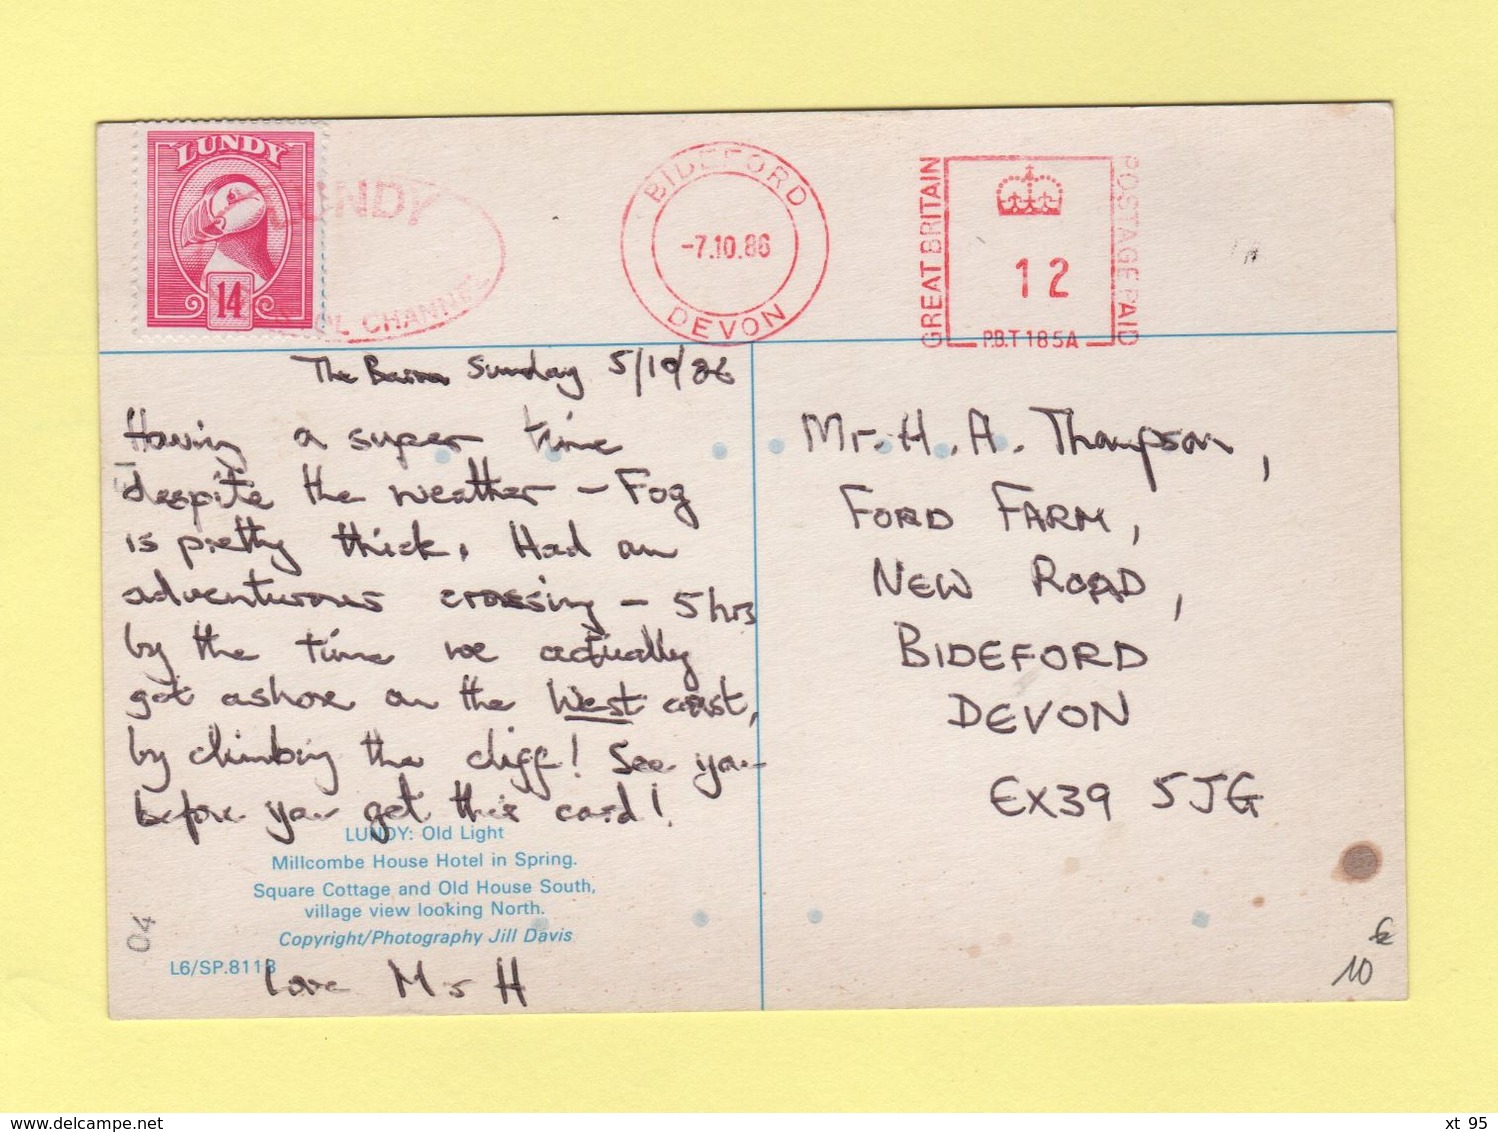 LUNDY
14
LUNDY
CHANNEL
BIDEFORD
-7.10.86
DEVON
GREAT BRITAIN
12
P.B.T 185A
POSTAGE PAID
The Barn Sunday 5/10/86
Having a super time
despite the weather - Fog
is pretty thick. Had an
adventurous crossing - 5 hrs
by the time we actually
got ashore on the West coast,
by climbing the cliff! See you
before you get this card!
LUNDY: Old Light
Millcombe House Hotel in Spring.
Square Cottage and Old House South,
village view looking North.
Copyright/Photography Jill Davis
L6/SP.8113
Love M & H
04
Mr. H. A. Thompson,
FORD FARM,
NEW ROAD,
BIDEFORD
DEVON
EX39 5JG
10
delcampe.net
xt 95